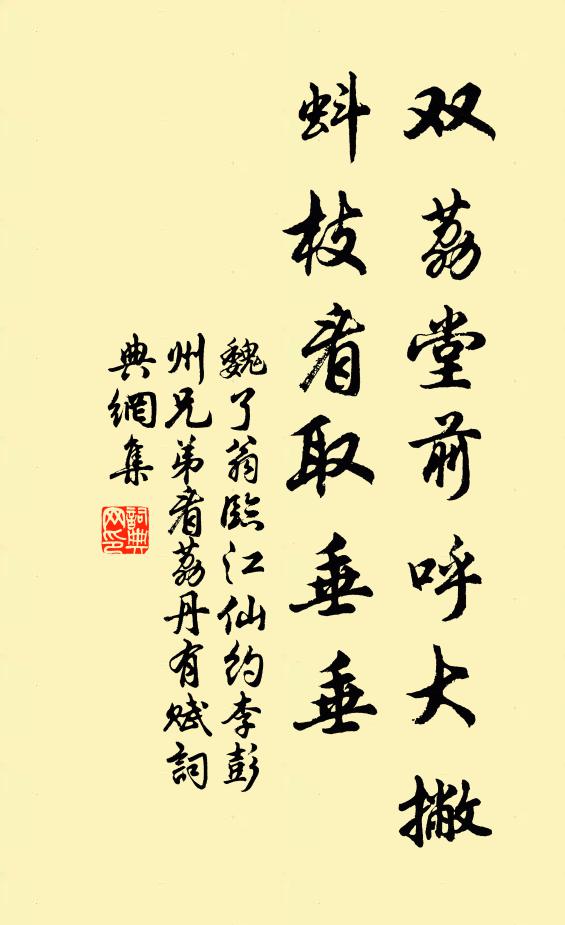 双荔堂前呼大撇
蚪枝看取垂垂
魏了翁臨江仙约李彭
州兄弟看荔丹有赋詞
典網集
詞典
网印